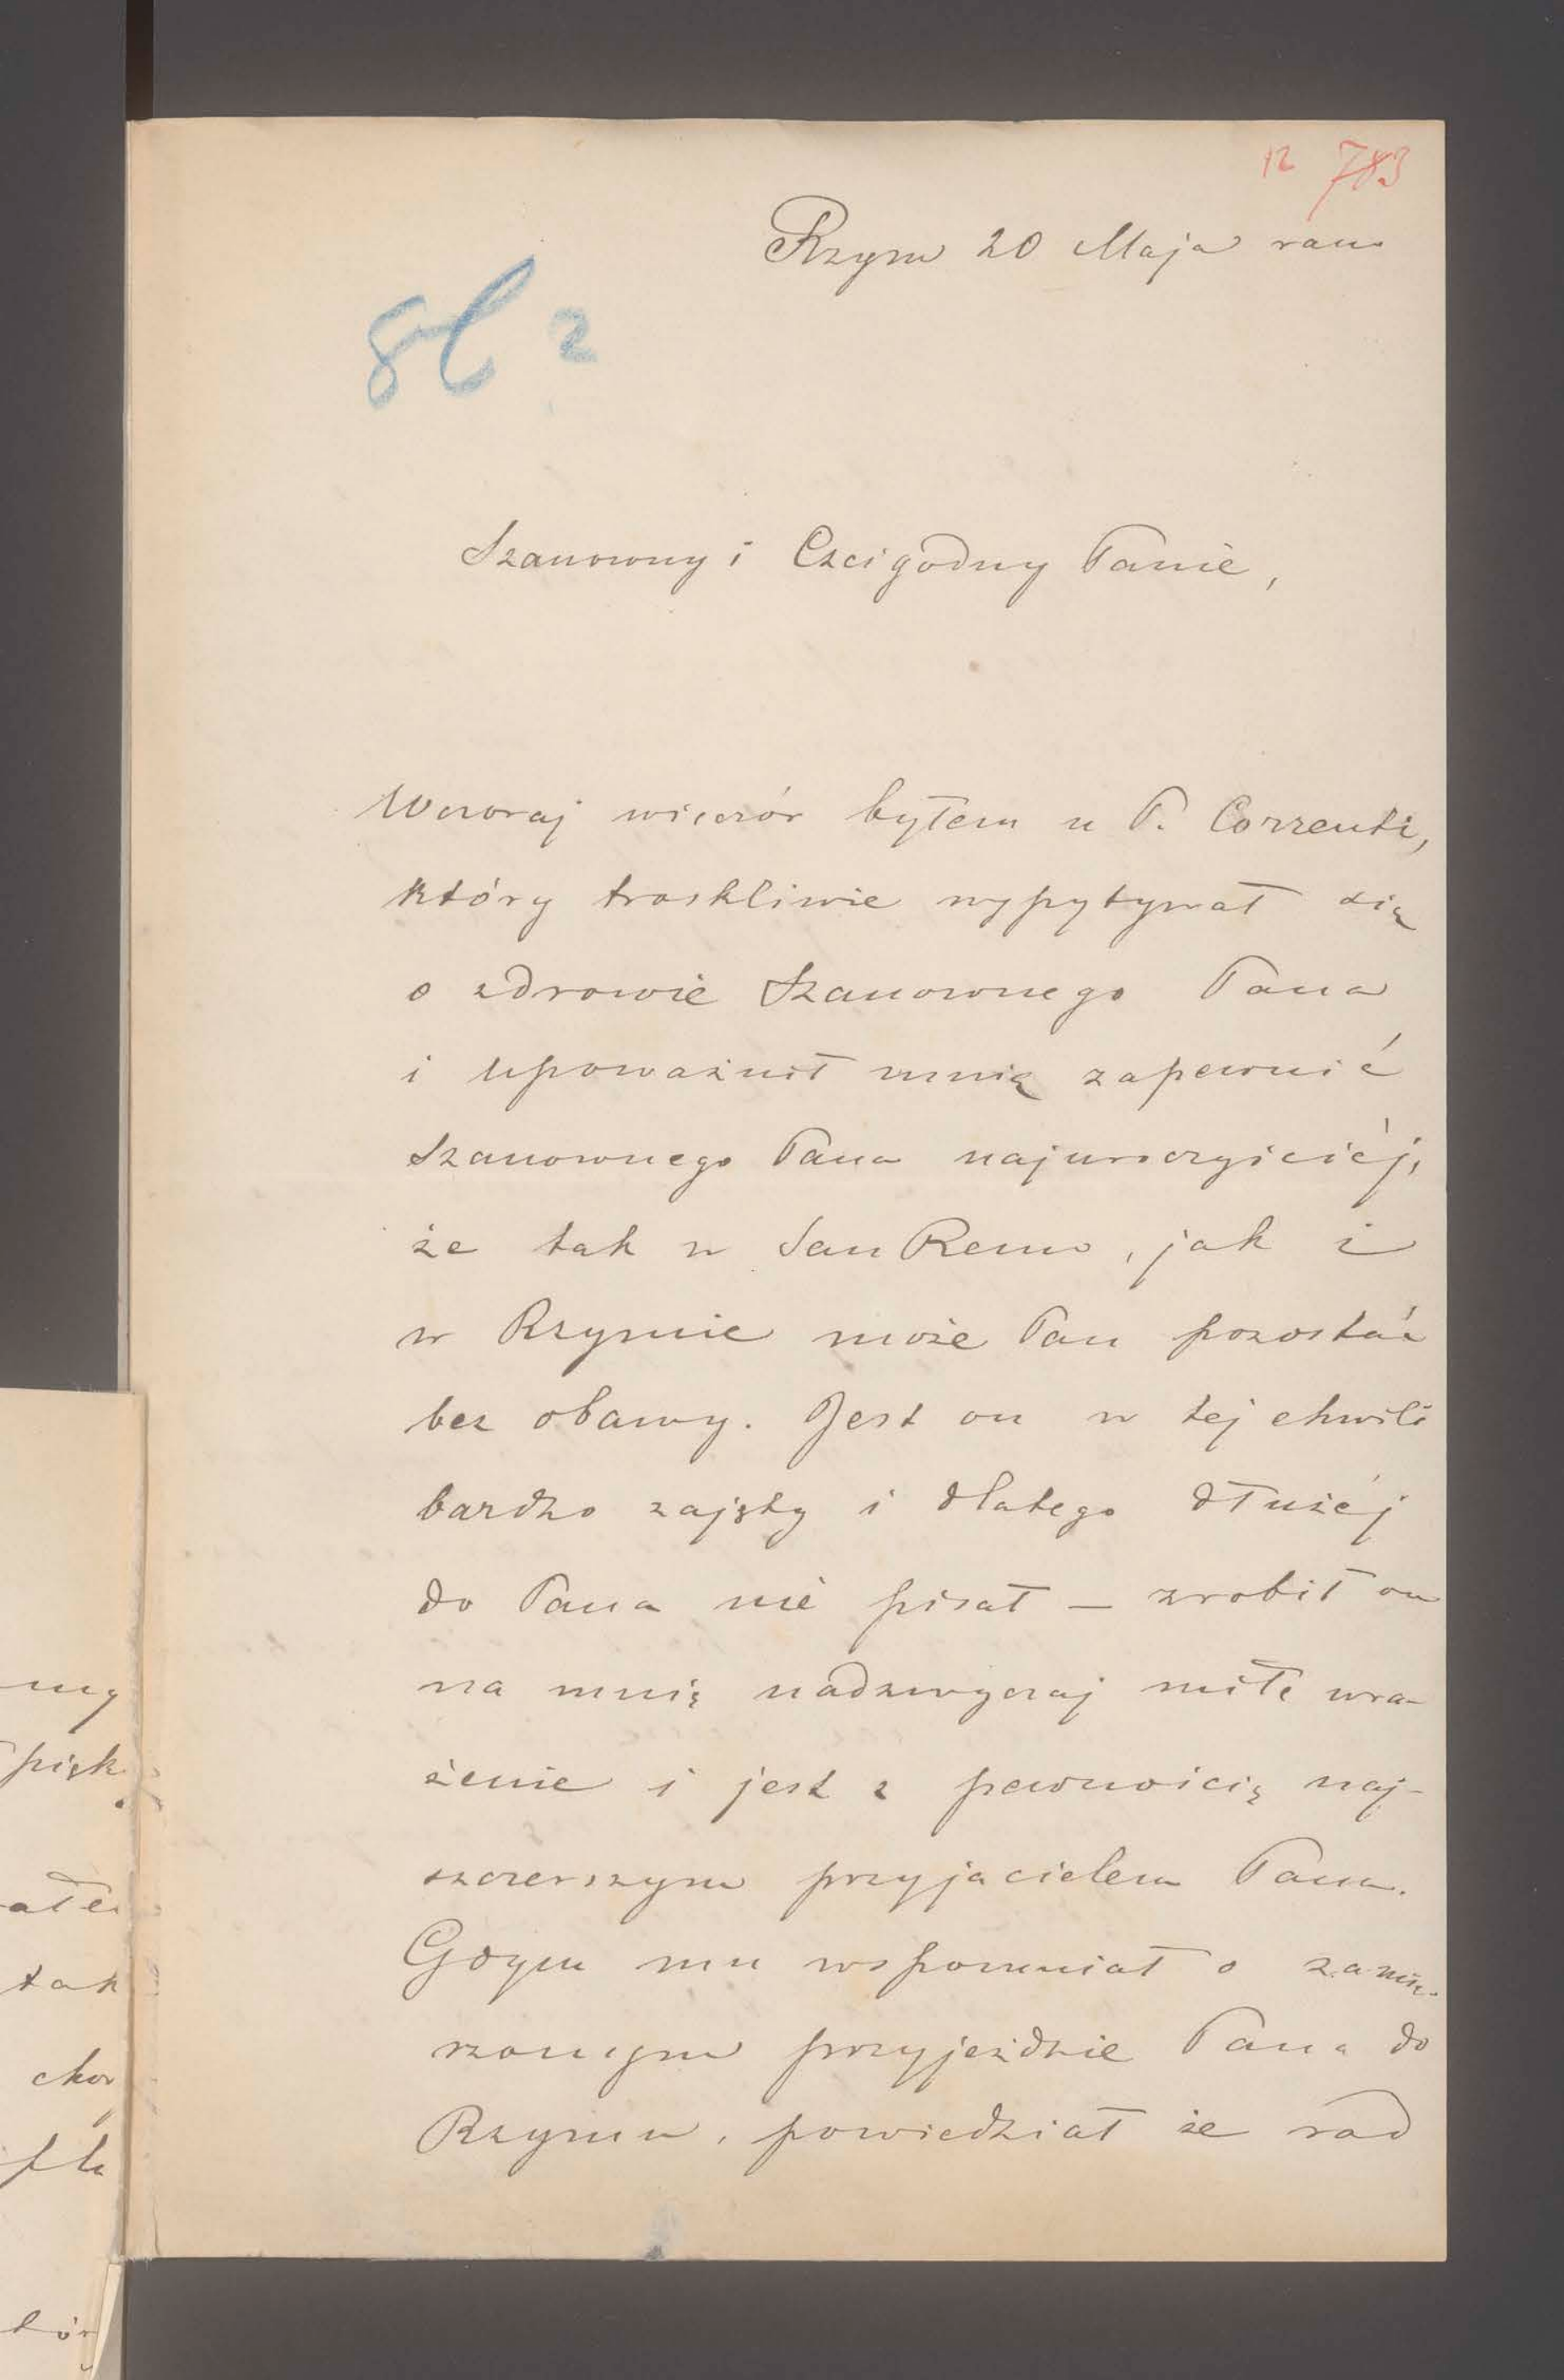 12 783
Rzym 20 Maja rano
2
Szanowny i Czcigodny Panie,
Wczoraj wieczór byłem u P. Correnti,
który troskliwie wypytywał się
o zdrowie Szanownego Pana
i upoważnił mnię zapewnić
Szanownego Pana najuroczyściéj,
że tak w San Remo, jak i
w Rzymie może Pan pozostać
bez obawy. Jest on w tej chwili
bardzo zajęty i dlatego dłużéj
do Pana nie pisał — zrobił on
na mnię nadzwyczaj miłe wra-
żenie i jest z pewnością naj-
szczerszym przyjacielem Pana.
Gdym mu wspomniał o zamie-
rzonym przyjeździe Pana do
Rzymu, powiedział że rad
ny
pięk
ałe
tak
chor